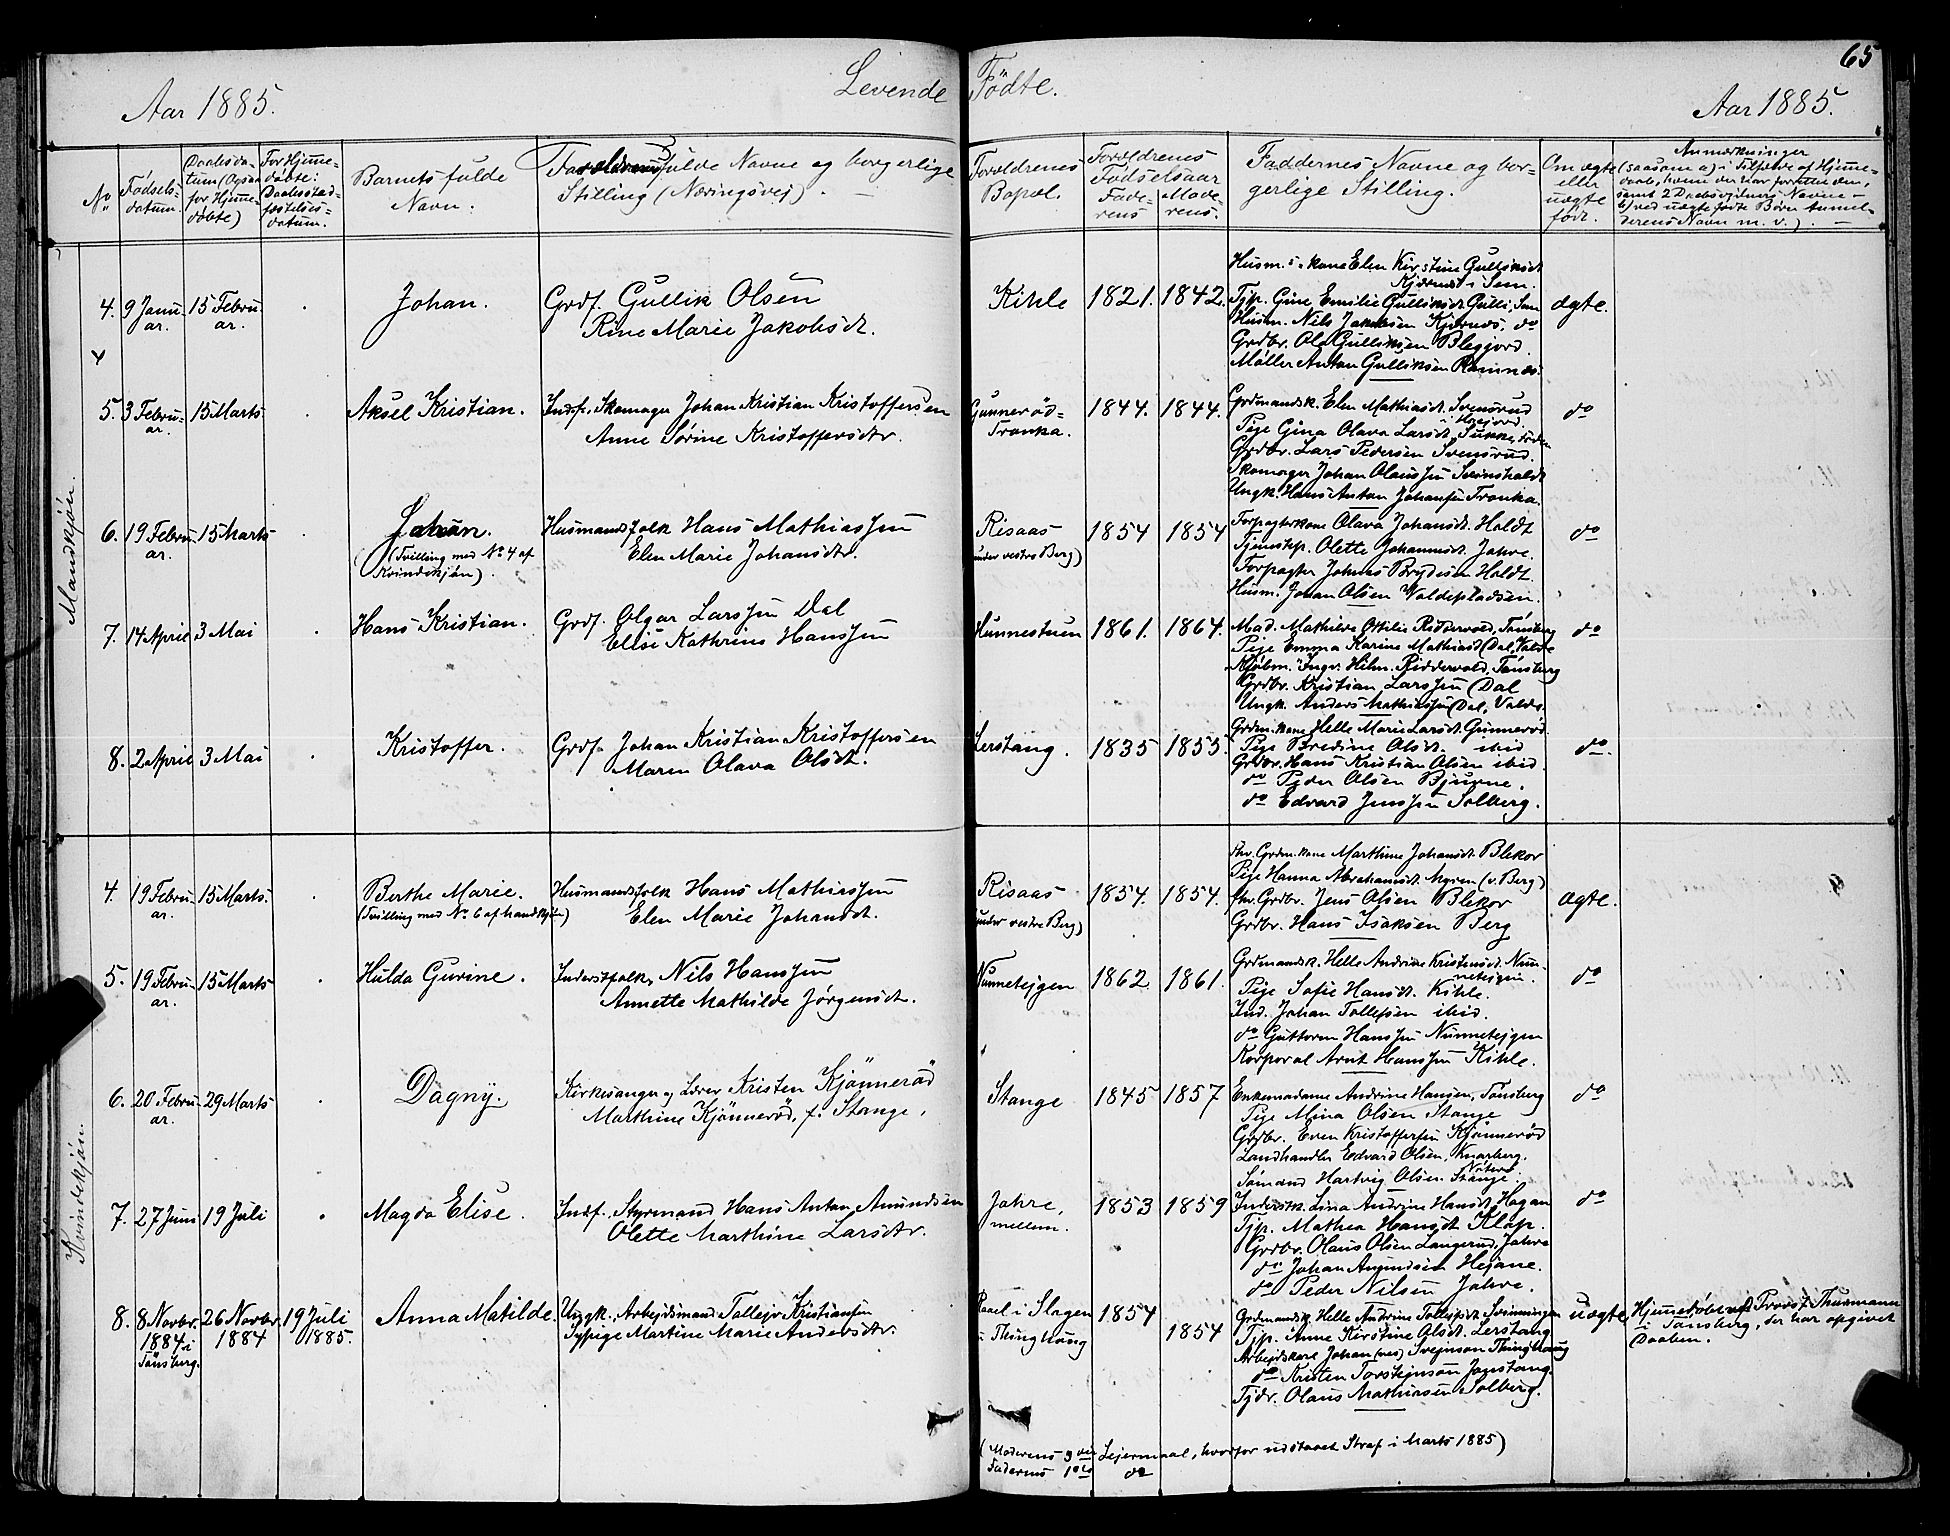 65
Levende Fødte.
Aar 1885.
Aar 1885.
No
Fødsels-
datum.
Daabsda-
tum (Ogsaa
for Hjemme-
døbte)
For Hjemme-
døbte:
Daabsstad-
fæstelses-
datum.
Barnets fulde
Navn.
Forældrenes fulde Navne og borgerlige
Stilling (Næringsvej). —
Forældrenes
Bopæl.
Forældrenes
Fødselsaar
Fade-
rens
Mode-
rens.
Faddernes Navne og bor-
gerlige Stilling.
Om ægte
eller
uægte
født.
Anmærkninger
(saasom a) i Tilfælde af Hjemme-
daab, hvem der har forrettet den,
samt 2 Daabsvidners Navne —
b) ved uægte fødte Børn Anmel-
derens Navn m. v.). —
Mandkjøn.
4. 9 Janu-
ar.
15 Febru-
ar.
Johan.
Grdf. Gullik Olsen
Rine Marie Jakobsdt.
Kihle
1821.
1842.
Husm.s.kone Elen Kirstine Gulliksdt
Kjærnæs i Sem.
Tjp. Gine Emilie Gulliksdt Gulli, Sem
Husm. Nils Jakobsen Kjærnæs. do
Grdbr. Ole Gulliksen Blegjord.
Møller Anton Gulliksen Ramnæs.
ægte.
5. 3 Febru-
ar.
15 Marts
Aksel Kristian.
Indf. Skomager Johan Kristian Kristoffersen
Anne Sørine Kristoffersdtr.
Gunnerød-
Tronka.
1844.
1844.
Grdmandsk. Elen Mathiasdt. Svensrud
Pige Gina Olava Larsdt. Sukke,
Grdbr. Lars Pedersen Svensrud.
Skomager Johan Olaussen
Ungk. Hans Anton Johansen Tronka.
do
6. 19 Febru-
ar.
15 Marts
Johan.
(Tvilling med No 4 af
Kvindekjøn).
Husmandsfolk Hans Mathiassen
Elen Marie Johansdtr.
Risaas
(under vestre Berg)
1854
1854
Forpagterkone Olava Johansdt. Holdt
Tjenestep. Olette Johannsdt. Jahre.
Forpagter Johans Brydesen Holdt.
Husm. Johan Olsen Valdepladsen.
do
7. 14 April
3 Mai
Hans Kristian.
Grdf. Olgar Larssen Dal
Elise Kathrine Hanssen
Hunnestuen
1861.
1864.
Mad. Mathilde Ottilie Riddervold, Tønsberg
Pige Emma Karine Mathiasd (Dal, Valde
Kjøbm. Ingv. Hilm. Riddervold, Tønsberg
Grdbr. Kristian Larssen (Dal
Ungk. Anders Mathiassen (Dal, Valde.
do
8. 2 April
3 Mai
Kristoffer.
Grdf. Johan Kristian Kristoffersen
Maren Olava Olsdt.
Lerstang.
1835
1855.
Grdm.kone Helle Marie Larsdt Gunnerød
Pige Bredine Olsdt. ibid
Grdbr. Hans Kristian Olsen ibid.
do Peder Olsen Bjuerne.
do Edvard Jenssen Solberg.
do.
Kvindekjøn.
4. 19 Febru-
ar.
15 Marts.
Berthe Marie.
(Tvilling med No 6 af Mandkjøn)
Husmandsfolk Hans Mathiassen
Elen Marie Johansdt.
Risaas
(under vestre Berg)
1854.
1854.
fhv. Grdm.kone Marthine Johansdt. Blekor
Pige Hanna Abrahamsdt. Myren (v. Berg)
fhv. Grdbr. Jens Olsen Blekor
Grdbr. Hans Isaksen Berg
ægte.
5. 19 Febru-
ar.
15 Marts
Hulda Gurine.
Inderstfolk, Nils Hanssen
Annette Mathilde Jørgensdt.
Nunnetejgen
1862
1861.
Grdmandsk. Helle Andrine Kristensdt. Nun-
netejgen.
Pige Sofie Hansdt. Kihle.
Ind. Johan Tollefsen ibid.
do Guttorm Hanssen Nunnetejgen
Korporal Arnt Hanssen Kihle.
do
6. 20 Febru-
ar.
29 Marts
Dagny.
Kirkesanger og Lærer Kristen Kjønnerød
Marthine Kjønnerød, f. Stange.
Stange
1845
1857
Enkemadame Andrine Hansen, Tønsberg
Pige Mina Olsen Stange
Grdbr. Even Kristoffersen Kjønnerød
Landhandler Edvard Olsen, Knarberg,
Nøterø.
Sømand Hartvig Olsen Stange.
do
7. 27 Juni
19 Juli
Magda Elise.
Indf. Styrmand Hans Anton Amundsen
Olette Marthine Larsdtr.
Jahre,
mellem.
1853
1859
Inderstk. Lina Andrine Hansdt. Hagan
Tjp. Mathea Hansdt Kløp.
Grdbr. Olaus Olsen Langerud, Jahre
do Johan Amundsen Hejane.
do Peder Nilsen Jahre.
do
8. 8 Novbr.
1884 i
Tønsberg.
26 Novbr
1884
19 Juli
1885.
Anna Matilde.
Ungk. Arbejdsmand Tollejv Kristiansen
Tjpige Martine Marie Andersdtr.
i Slagen
i Thinghaug
1854
1854
Grdmandsk. Helle Andrine Tollefsdt Svinningen
Tjp. Anne Kirstine Olsdt. Lerstang
Arbejdskarl Johan (nes) Svejnson Thinghaug
do Kristen Torstejnsøn Janstang.
Tjdr. Olaus Mathiasen Solberg.
uægte
Hjemmedøbt af Provst Thurmann
i Tønsberg, der har opgivet
Daaben.
(Moderens 3die Lejermaal, hvorfor udstaaet Straf i Marts 1885)
Faderens 1ste do